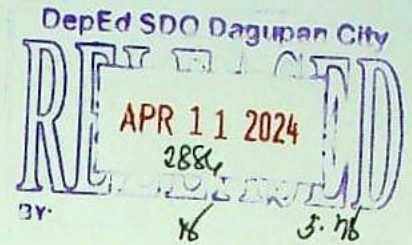 DepEd SDO Dagupan City
RELEASED
APR 11 2024
2884
BY: